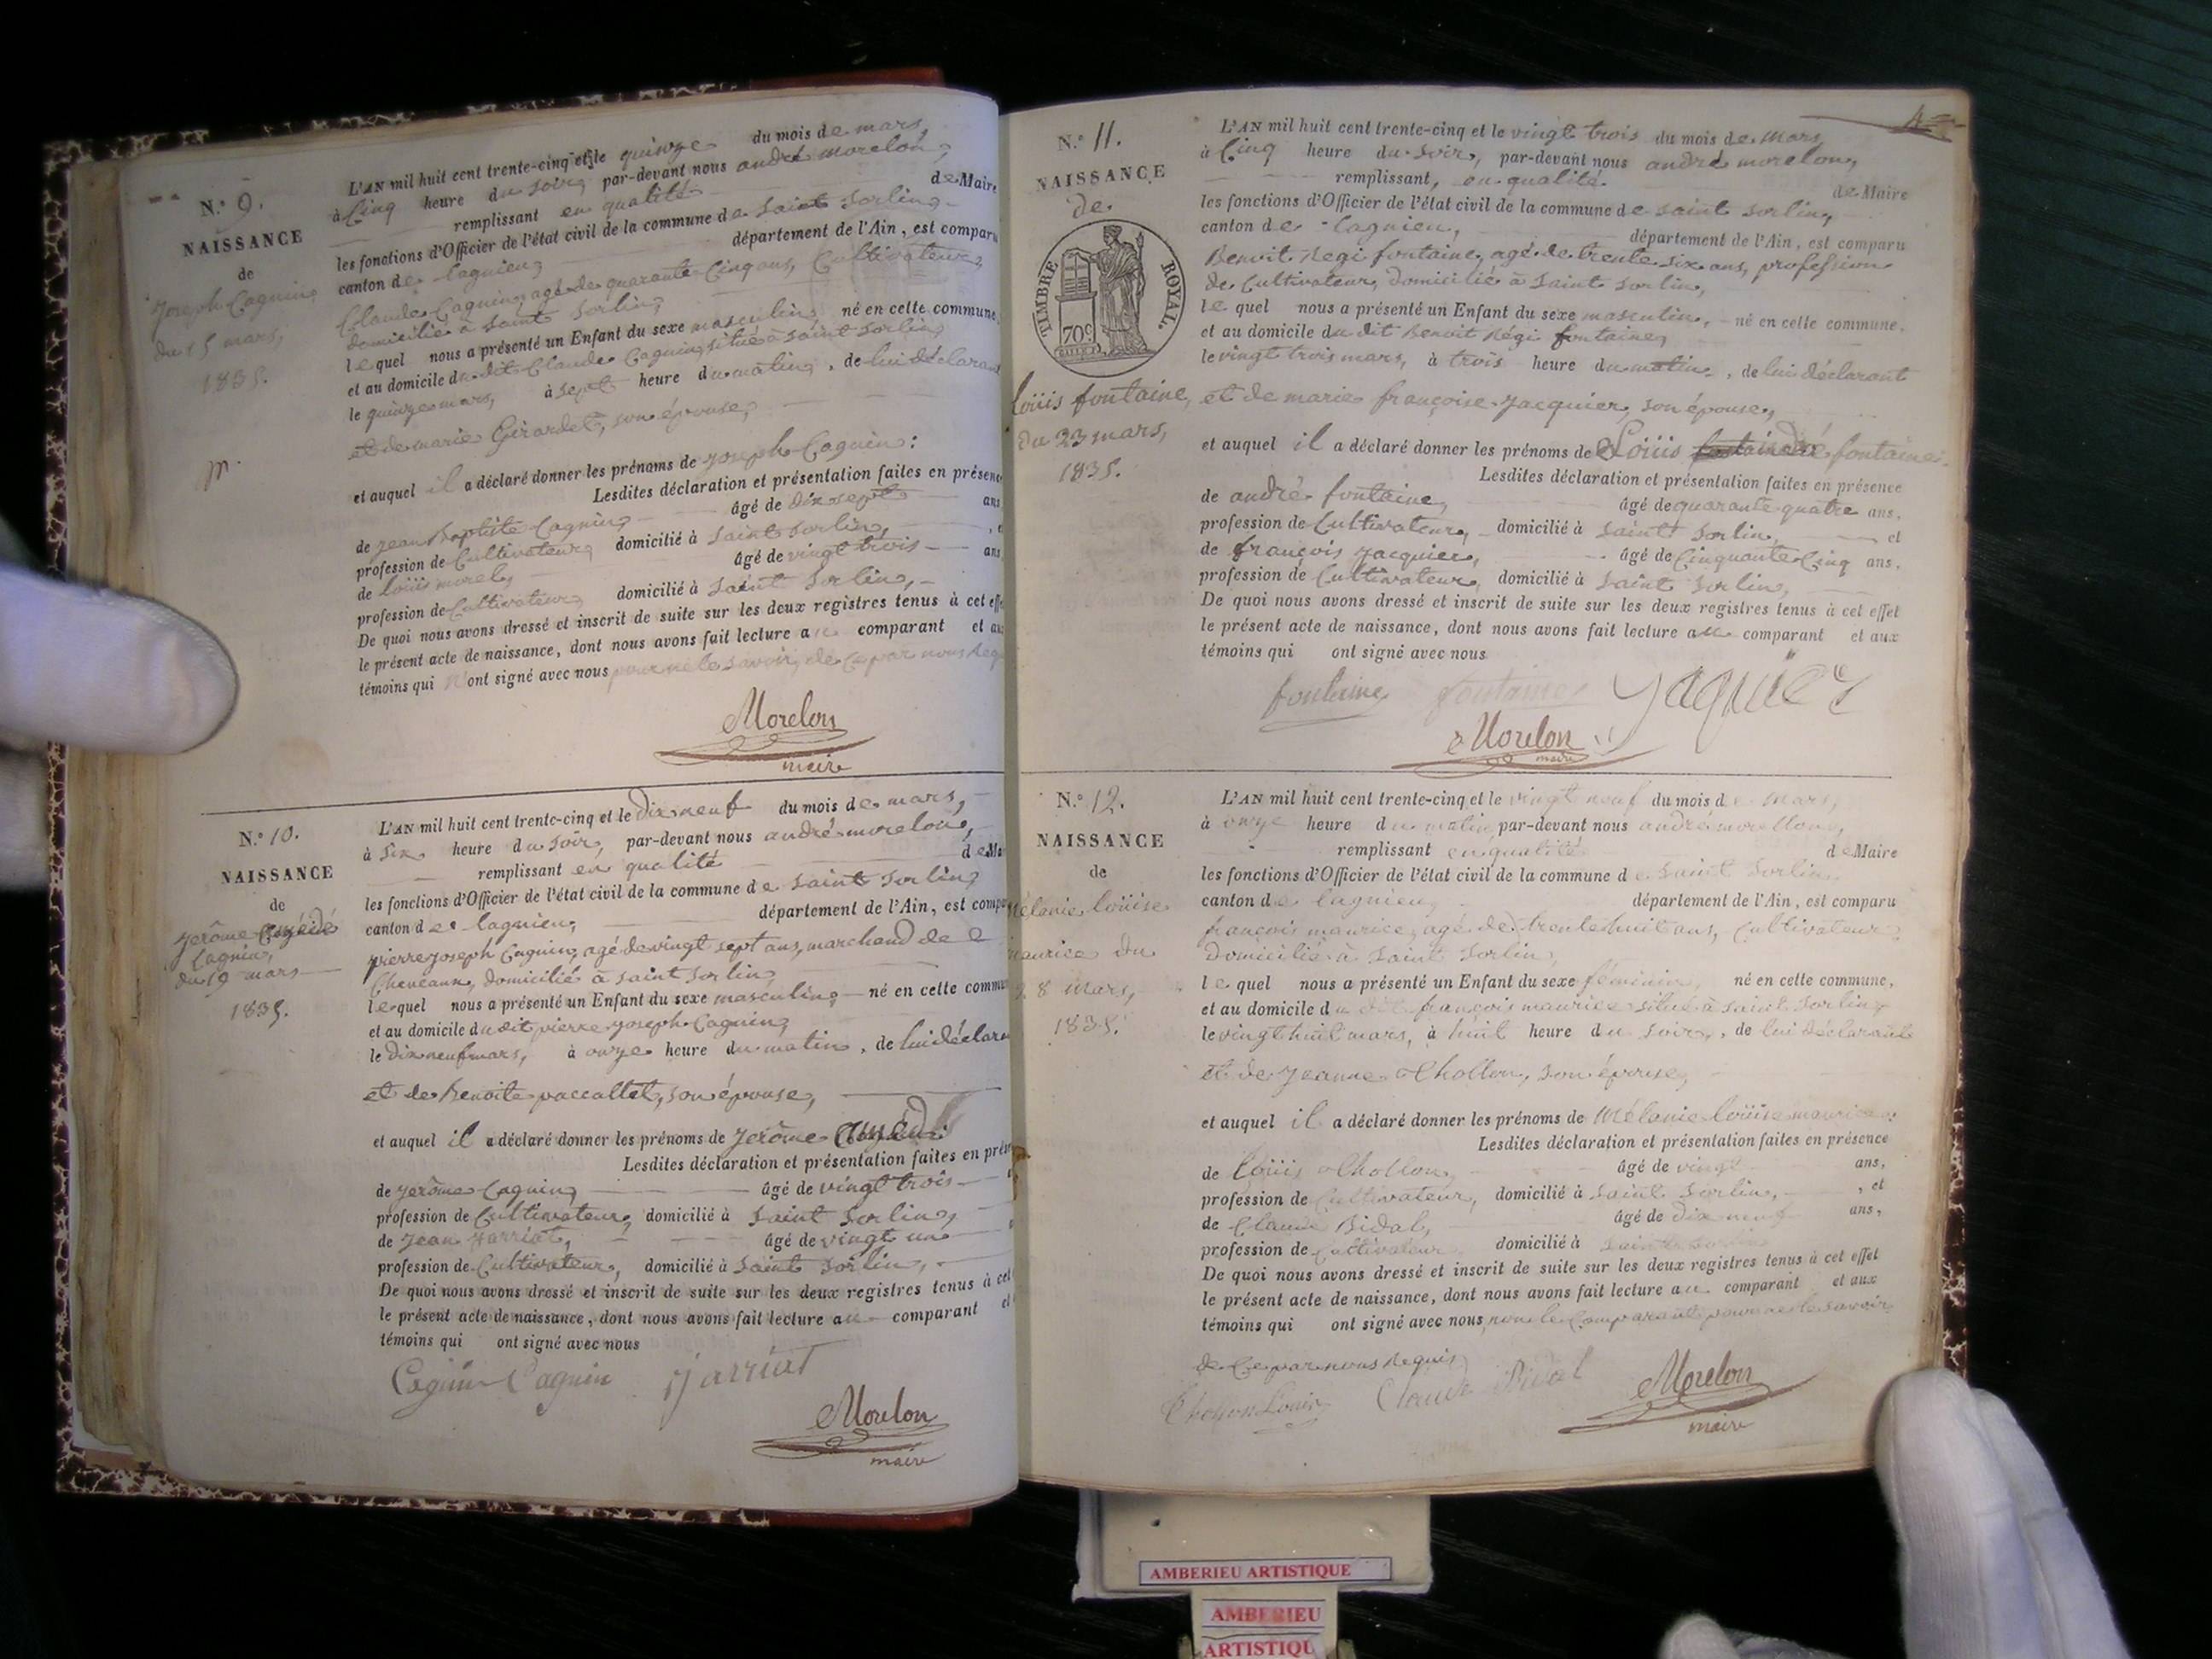 N.° 9.
NAISSANCE
de
Joseph Cagnin,
du 15 mars,
1835.
L'AN mil huit cent trente-cinq et le quinze du mois de mars,
à Cinq heure du soir, par-devant nous andré morelon,
remplissant en qualité de Maire
les fonctions d'Officier de l'état civil de la commune de Saint Sorlin,
canton de lagnieu, département de l'Ain, est comparu
Claude Cagnin, agé de quarante Cinq ans, Cultivateur,
domicilié à Saint Sorlin,
lequel nous a présenté un Enfant du sexe masculin, né en cette commune,
et au domicile du dit Claude Cagnin, situé à Saint Sorlin,
le quinze mars, à sept heure du matin, de lui déclarant
et de marie Girardet, son épouse,
et auquel il a déclaré donner les prénoms de Joseph Cagnin:
Lesdites déclaration et présentation faites en présence
de jean Baptite Cagnin, âgé de dix sept ans
profession de Cultivateur, domicilié à Saint Sorlin, , et
de Loüis morel, âgé de vingt trois ans
profession de Cultivateur, domicilié à Saint Sorlin,
De quoi nous avons dressé et inscrit de suite sur les deux registres tenus à cet effet
le présent acte de naissance, dont nous avons fait lecture au comparant et aux
témoins qui n'ont signé avec nous pour ne le savoir, de Ce par nous Req
Morelon
maire
N.° 10.
NAISSANCE
de
Jerôme
Cagnin,
du 19 mars
1835.
L'AN mil huit cent trente-cinq et le Dix neuf du mois de mars,
à Six heure du soir, par-devant nous andré morelon,
remplissant en qualité de Ma
les fonctions d'Officier de l'état civil de la commune de Saint Sorlin,
canton de lagnieu, département de l'Ain, est compa
pierre joseph Cagnin, agé de vingt sept ans, marchand de
domicilié à Saint Sorlin,
lequel nous a présenté un Enfant du sexe masculin, né en cette commu
et au domicile du dit pierre joseph Cagnin,
le Dix neuf mars, à onze heure du matin, de lui déclara
et de Benoite paccallet, son épouse,
et auquel il a déclaré donner les prénoms de Jerôme
Lesdites déclaration et présentation faites en prés
de Jerôme Cagnin, âgé de vingt trois
profession de Cultivateur, domicilié à Saint Sorlin,
de Jean Jarriat, âgé de vingt un
profession de Cultivateur, domicilié à Saint Sorlin,
De quoi nous avons dressé et inscrit de suite sur les deux registres tenus à cet
le présent acte de naissance, dont nous avons fait lecture au comparant et
témoins qui ont signé avec nous
Cagnin Cagnin Jarriat
Morelon
maire
N.° 11.
NAISSANCE
de
TIMBRE ROYAL.
70c
Loüis fontaine,
du 23 mars,
1835.
L'AN mil huit cent trente-cinq et le vingt trois du mois de mars,
à Cinq heure du soir, par-devant nous andré morelon,
remplissant, en qualité de Maire
les fonctions d'Officier de l'état civil de la commune de Saint Sorlin,
canton de lagnieu, département de l'Ain, est comparu
Benoit Régi fontaine, agé de trente six ans, profession
de Cultivateur, domicilié à Saint Sorlin,
lequel nous a présenté un Enfant du sexe masculin, né en cette commune,
et au domicile du dit Benoit Régi fontaine,
le vingt trois mars, à trois heure du matin, de lui déclarant
et de marie françoise Jacquier, son épouse,
et auquel il a déclaré donner les prénoms de Loüis fontaine.
Lesdites déclaration et présentation faites en présence
de andré fontaine, âgé de quarante quatre ans,
profession de Cultivateur, domicilié à Saint Sorlin, et
de françois Jacquier, âgé de Cinquante Cinq ans,
profession de Cultivateur, domicilié à Saint Sorlin,
De quoi nous avons dressé et inscrit de suite sur les deux registres tenus à cet effet
le présent acte de naissance, dont nous avons fait lecture au comparant et aux
témoins qui ont signé avec nous
fontaine fontaine Jaquier
Morelon
maire
N.° 12.
NAISSANCE
de
Mélanie Loüise
maurice du
28 mars,
1835.
L'AN mil huit cent trente-cinq et le vingt neuf du mois de mars,
à onze heure du matin, par-devant nous andré morellon,
remplissant en qualité de Maire
les fonctions d'Officier de l'état civil de la commune de Saint Sorlin,
canton de lagnieu, département de l'Ain, est comparu
françois maurice, agé de trente huit ans, Cultivateur,
Domicilié à Saint Sorlin,
lequel nous a présenté un Enfant du sexe féminin, né en cette commune,
et au domicile du dit françois maurice situé à Saint Sorlin,
le vingt huit mars, à huit heure du soir, de lui déclarant
et de Jeanne Chollon, son épouse,
et auquel il a déclaré donner les prénoms de Mélanie Loüise maurice:
Lesdites déclaration et présentation faites en présence
de Loüis Chollon, âgé de vingt ans,
profession de Cultivateur, domicilié à Saint Sorlin, , et
de Claude Bidal, âgé de dix neuf ans,
profession de Cultivateur, domicilié à Saint Sorlin
De quoi nous avons dressé et inscrit de suite sur les deux registres tenus à cet effet
le présent acte de naissance, dont nous avons fait lecture au comparant et aux
témoins qui ont signé avec nous, non le Comparant pour ne le savoir
de Ce par nous Requis
Chollon Louis Claude Bidal Morelon
maire
AMBERIEU ARTISTIQUE
AMBERIEU
ARTISTIQU